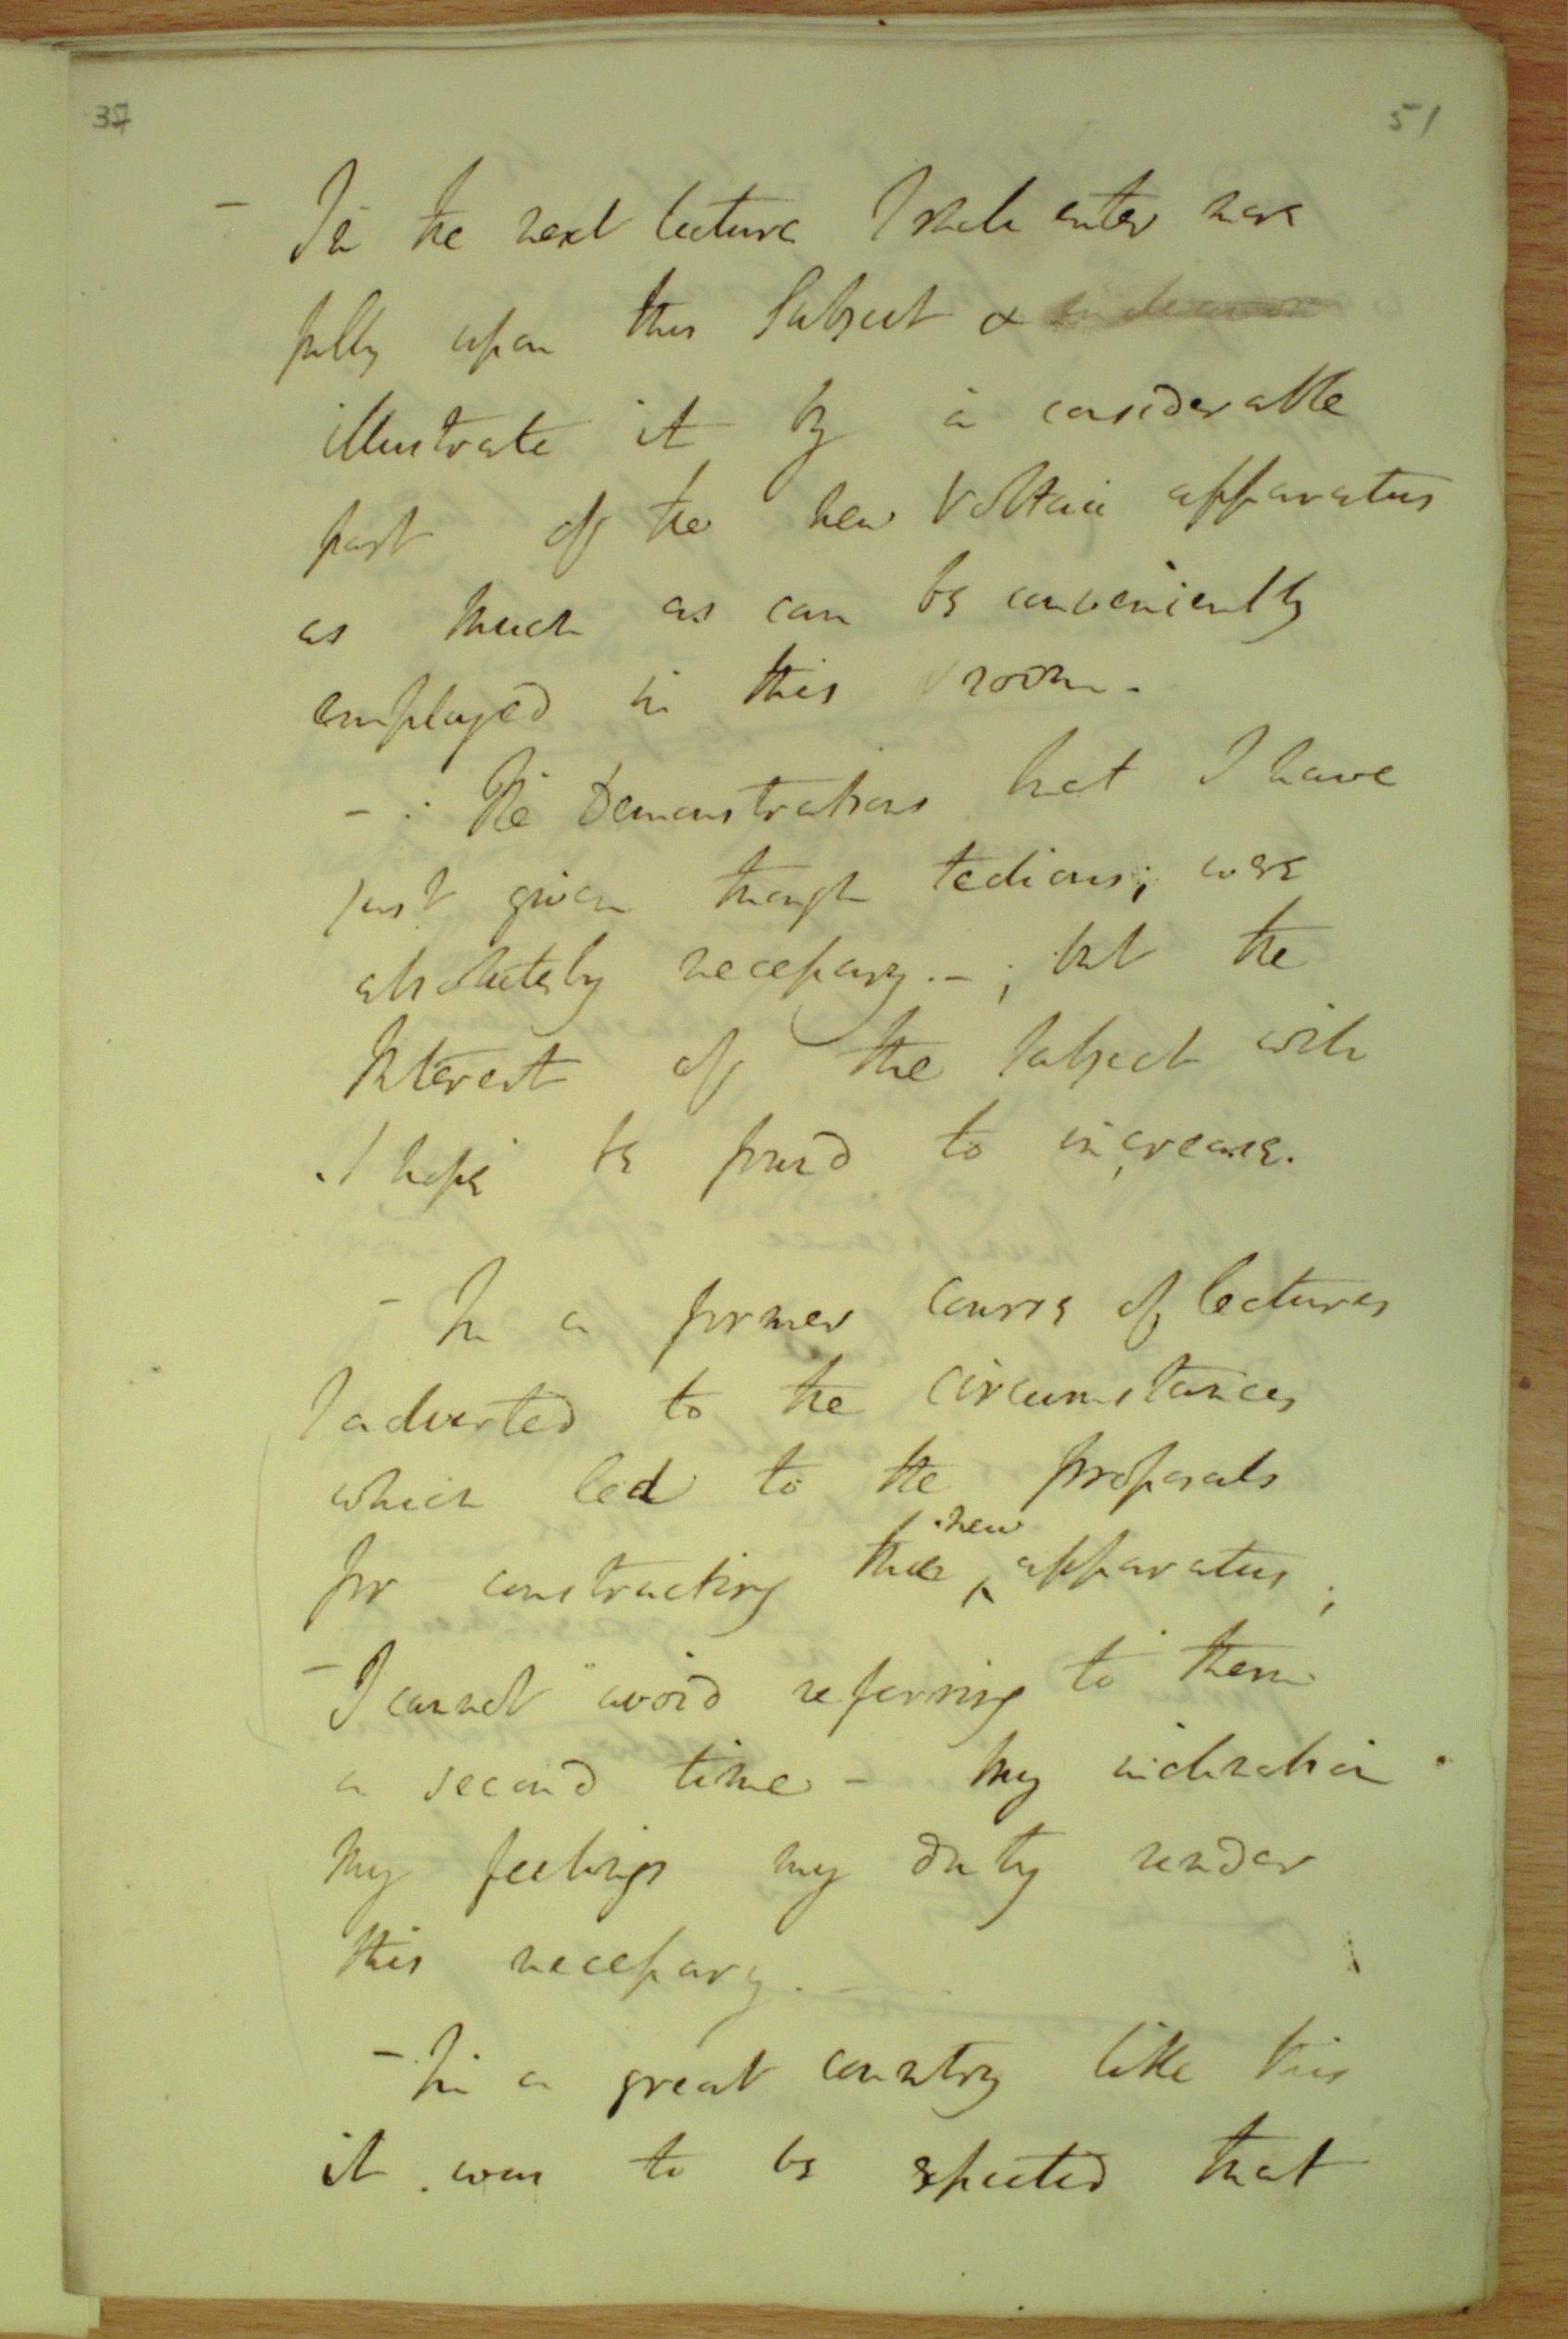 37
51
- In the next lecture I shall enter more
fully upon this Subject &
illustrate it by a considerable
part of the new Voltaic apparatus
as much as can be conveniently
employed in this room.
- The Demonstrations that I have
just given though tedious; were
absolutely necessary. - ; but the
Interest of the Subject will
I hope be found to increase.
- In a former course of lectures
I adverted to the circumstances
which led to the proposals
new
for constructing this ^ apparatus;
- I cannot avoid referring to them
a second time - My inclination
My feelings my duty render
this necessary. -
- In a great country like this
it was to be expected that